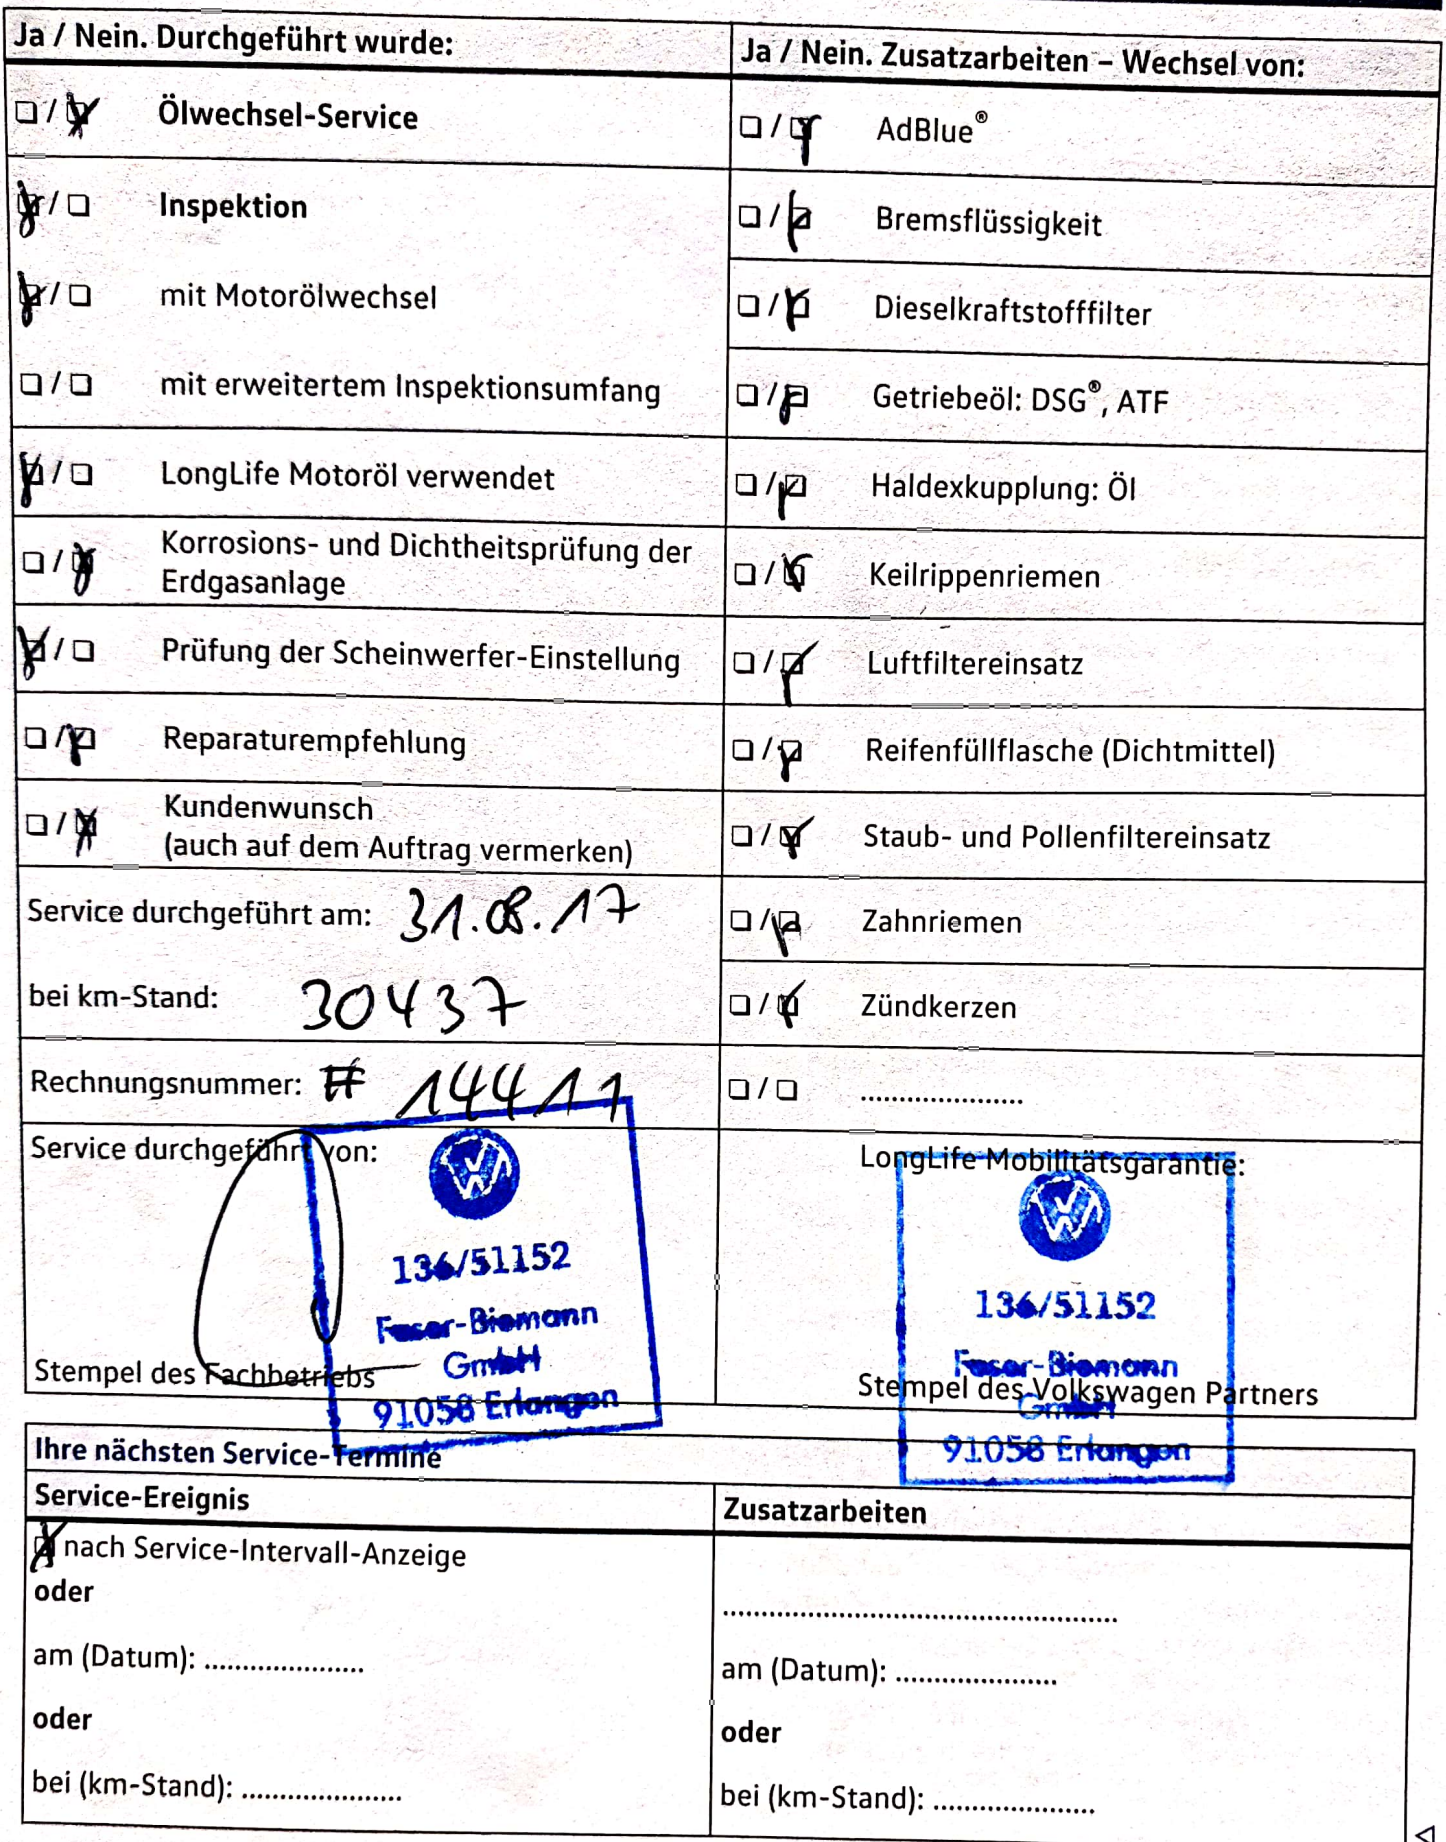 Ja / Nein. Durchgeführt wurde:
☐ / ☒ Ölwechsel-Service
☒ / ☐ Inspektion
☒ / ☐ mit Motorölwechsel
☐ / ☐ mit erweitertem Inspektionsumfang
☒ / ☐ LongLife Motoröl verwendet
☐ / ☒ Korrosions- und Dichtheitsprüfung der
Erdgasanlage
☒ / ☐ Prüfung der Scheinwerfer-Einstellung
☐ / ☒ Reparaturempfehlung
☐ / ☒ Kundenwunsch
(auch auf dem Auftrag vermerken)
Service durchgeführt am: 31.08.17
bei km-Stand: 30437
Rechnungsnummer: # 14411
Service durchgeführt von:
136/51152
Feser-Biemann
GmbH
91058 Erlangen
Stempel des Fachbetriebs
Ja / Nein. Zusatzarbeiten – Wechsel von:
☐ / ☒ AdBlue®
☐ / ☒ Bremsflüssigkeit
☐ / ☒ Dieselkraftstofffilter
☐ / ☒ Getriebeöl: DSG®, ATF
☐ / ☒ Haldexkupplung: Öl
☐ / ☒ Keilrippenriemen
☐ / ☒ Luftfiltereinsatz
☐ / ☒ Reifenfüllflasche (Dichtmittel)
☐ / ☒ Staub- und Pollenfiltereinsatz
☐ / ☒ Zahnriemen
☐ / ☒ Zündkerzen
☐ / ☐ .....................
LongLife Mobilitätsgarantie:
136/51152
Feser-Biemann
GmbH
91058 Erlangen
Stempel des Volkswagen Partners
Ihre nächsten Service-Termine
Service-Ereignis
☒ nach Service-Intervall-Anzeige
oder
am (Datum): .....................
oder
bei (km-Stand): .....................
Zusatzarbeiten
....................................................
am (Datum): .....................
oder
bei (km-Stand): .....................